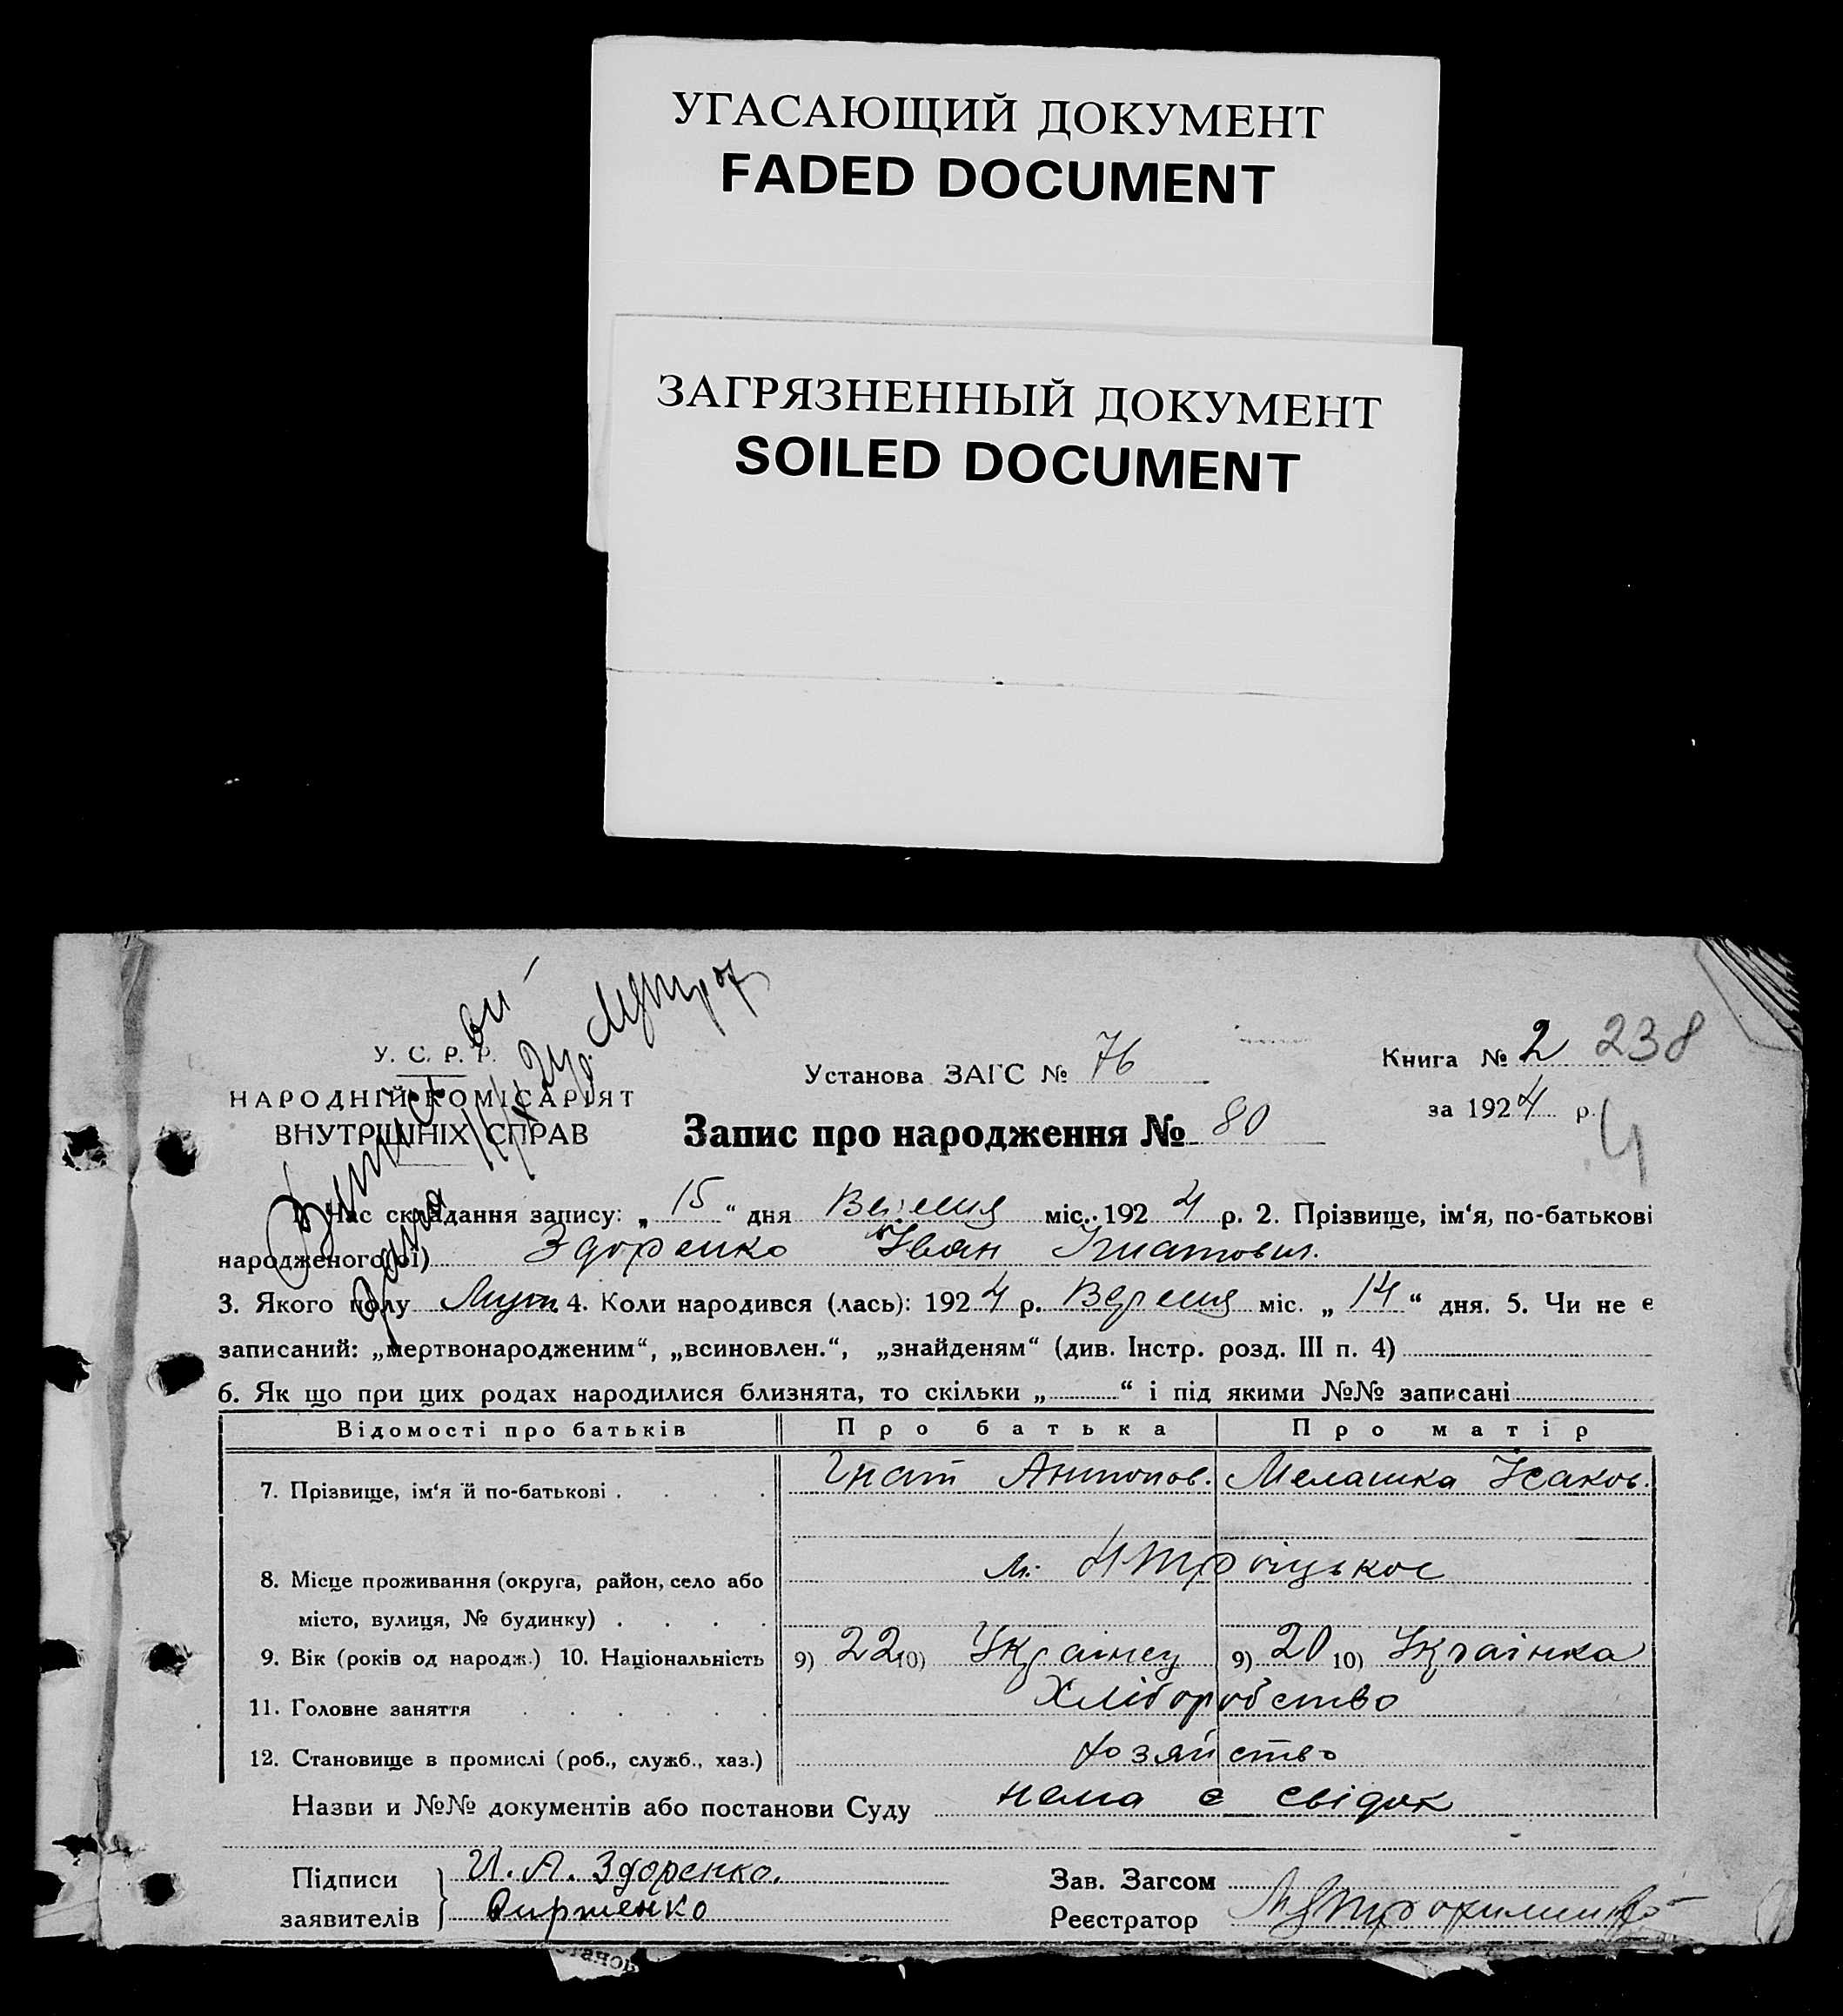 УГАСАЮЩИЙ ДОКУМЕНТ
FADED DOCUMENT
ЗАГРЯЗНЕННЫЙ ДОКУМЕНТ
SOILED DOCUMENT
У. С. Р. Р.
НАРОДНІЙ КОМІСАРІЯТ
ВНУТРІШНІХ СПРАВ
Установа ЗАГС № 76
Книга № 2 238
за 1924 р.
4
Запис про народження № 80
1. Час складання запису: „15“ дня міс. 1924 р. 2. Прізвище, ім‘я, по-батькові
народженого(ої) Здоренко Іван Ігнатович.
3. Якого полу Муж. 4. Коли народився (лась): 1924 р. Вересня міс. „14“ дня. 5. Чи не є
записаний: „мертвонародженим“, „всиновлен.“, „знайденям“ (див. Інстр. розд. III п. 4)
6. Як що при цих родах народилися близнята, то скільки „ “ і під якими №№ записані
Відомості про батьків Про батька Про матір
7. Прізвище, ім‘я й по-батькові Гнат Антонов. Мелашка Ісаков.
8. Місце проживання (округа, район, село або
місто, вулиця, № будинку) м. Нтроіцькое
9. Вік (років од народж.) 10. Національність 9) 22 10) Українец 9) 20 10) Українка
11. Головне заняття Хліборобство
12. Становище в промислі (роб., служб., хаз.) хозяйство
Назви и №№ документів або постанови Суду нема є свідок
Підписи И. А. Здоренко.
заявителів
Зав. Загсом
Реєстратор